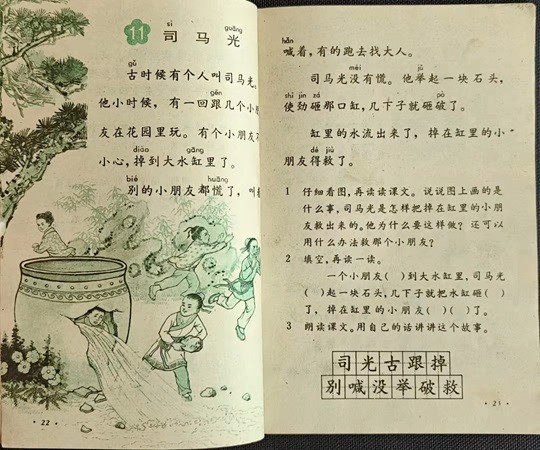 sī guāng
11 司马光
gǔ
古时候有个人叫司马光。
gēn
他小时候，有一回跟几个小朋
友在花园里玩。有个小朋友不
diào gāng
小心，掉到大水缸里了。
bié huāng
别的小朋友都慌了，叫
22
hǎn
喊着，有的跑去找大人。
méi jǔ
司马光没有慌。他举起一块石头，
shǐ jìn zá pò
使劲砸那口缸，几下子就砸破了。
缸里的水流出来了，掉在缸里的小
dé jiù
朋友得救了。
1 仔细看图，再读读课文。说说图上画的是
什么事，司马光是怎样把掉在缸里的小朋
友救出来的。他为什么要这样做？还可以
用什么办法救那个小朋友？
2 填空，再读一读。
一个小朋友（ ）到大水缸里，司马光
（ ）起一块石头，几下子就把水缸砸（ ）
了，掉在缸里的小朋友（ ）（ ）了。
3 朗读课文。用自己的话讲讲这个故事。
司光古跟掉
别喊没举破救